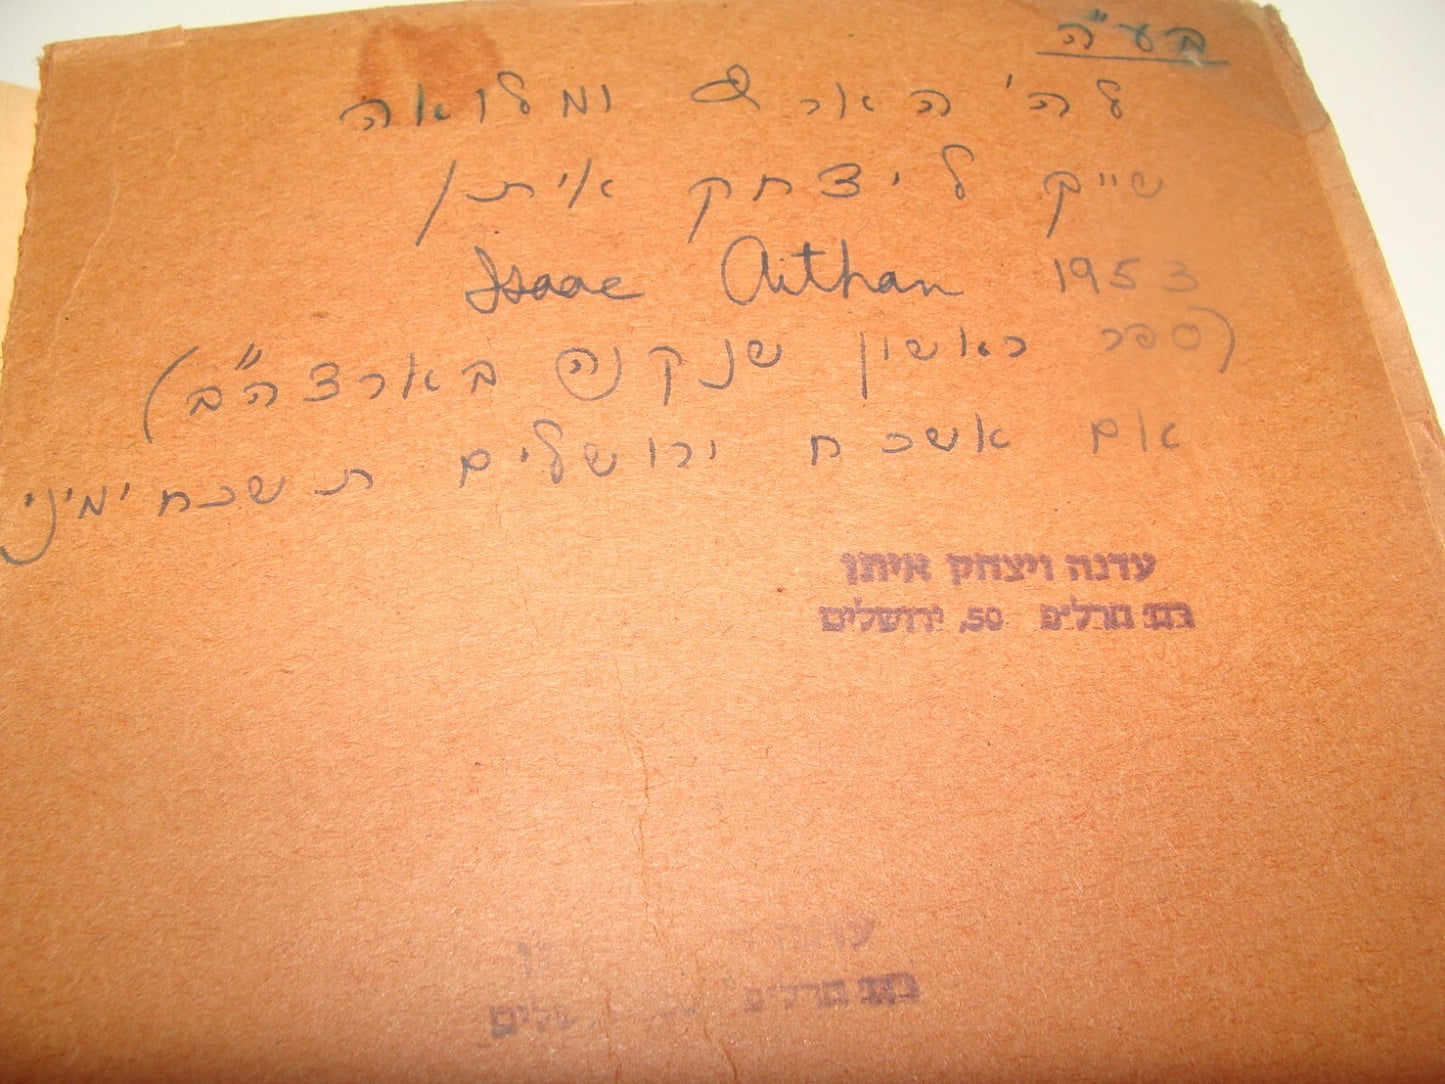 בע"ה
לה' הארץ ומלואה
שייך ליצחק איתן
Isaac Aithan 1953
(ספר ראשון שנקנה בארצה"ב)
אם אשכח ירושלים תשכח ימיני
עדנה ויצחק איתן
50, ירושלים